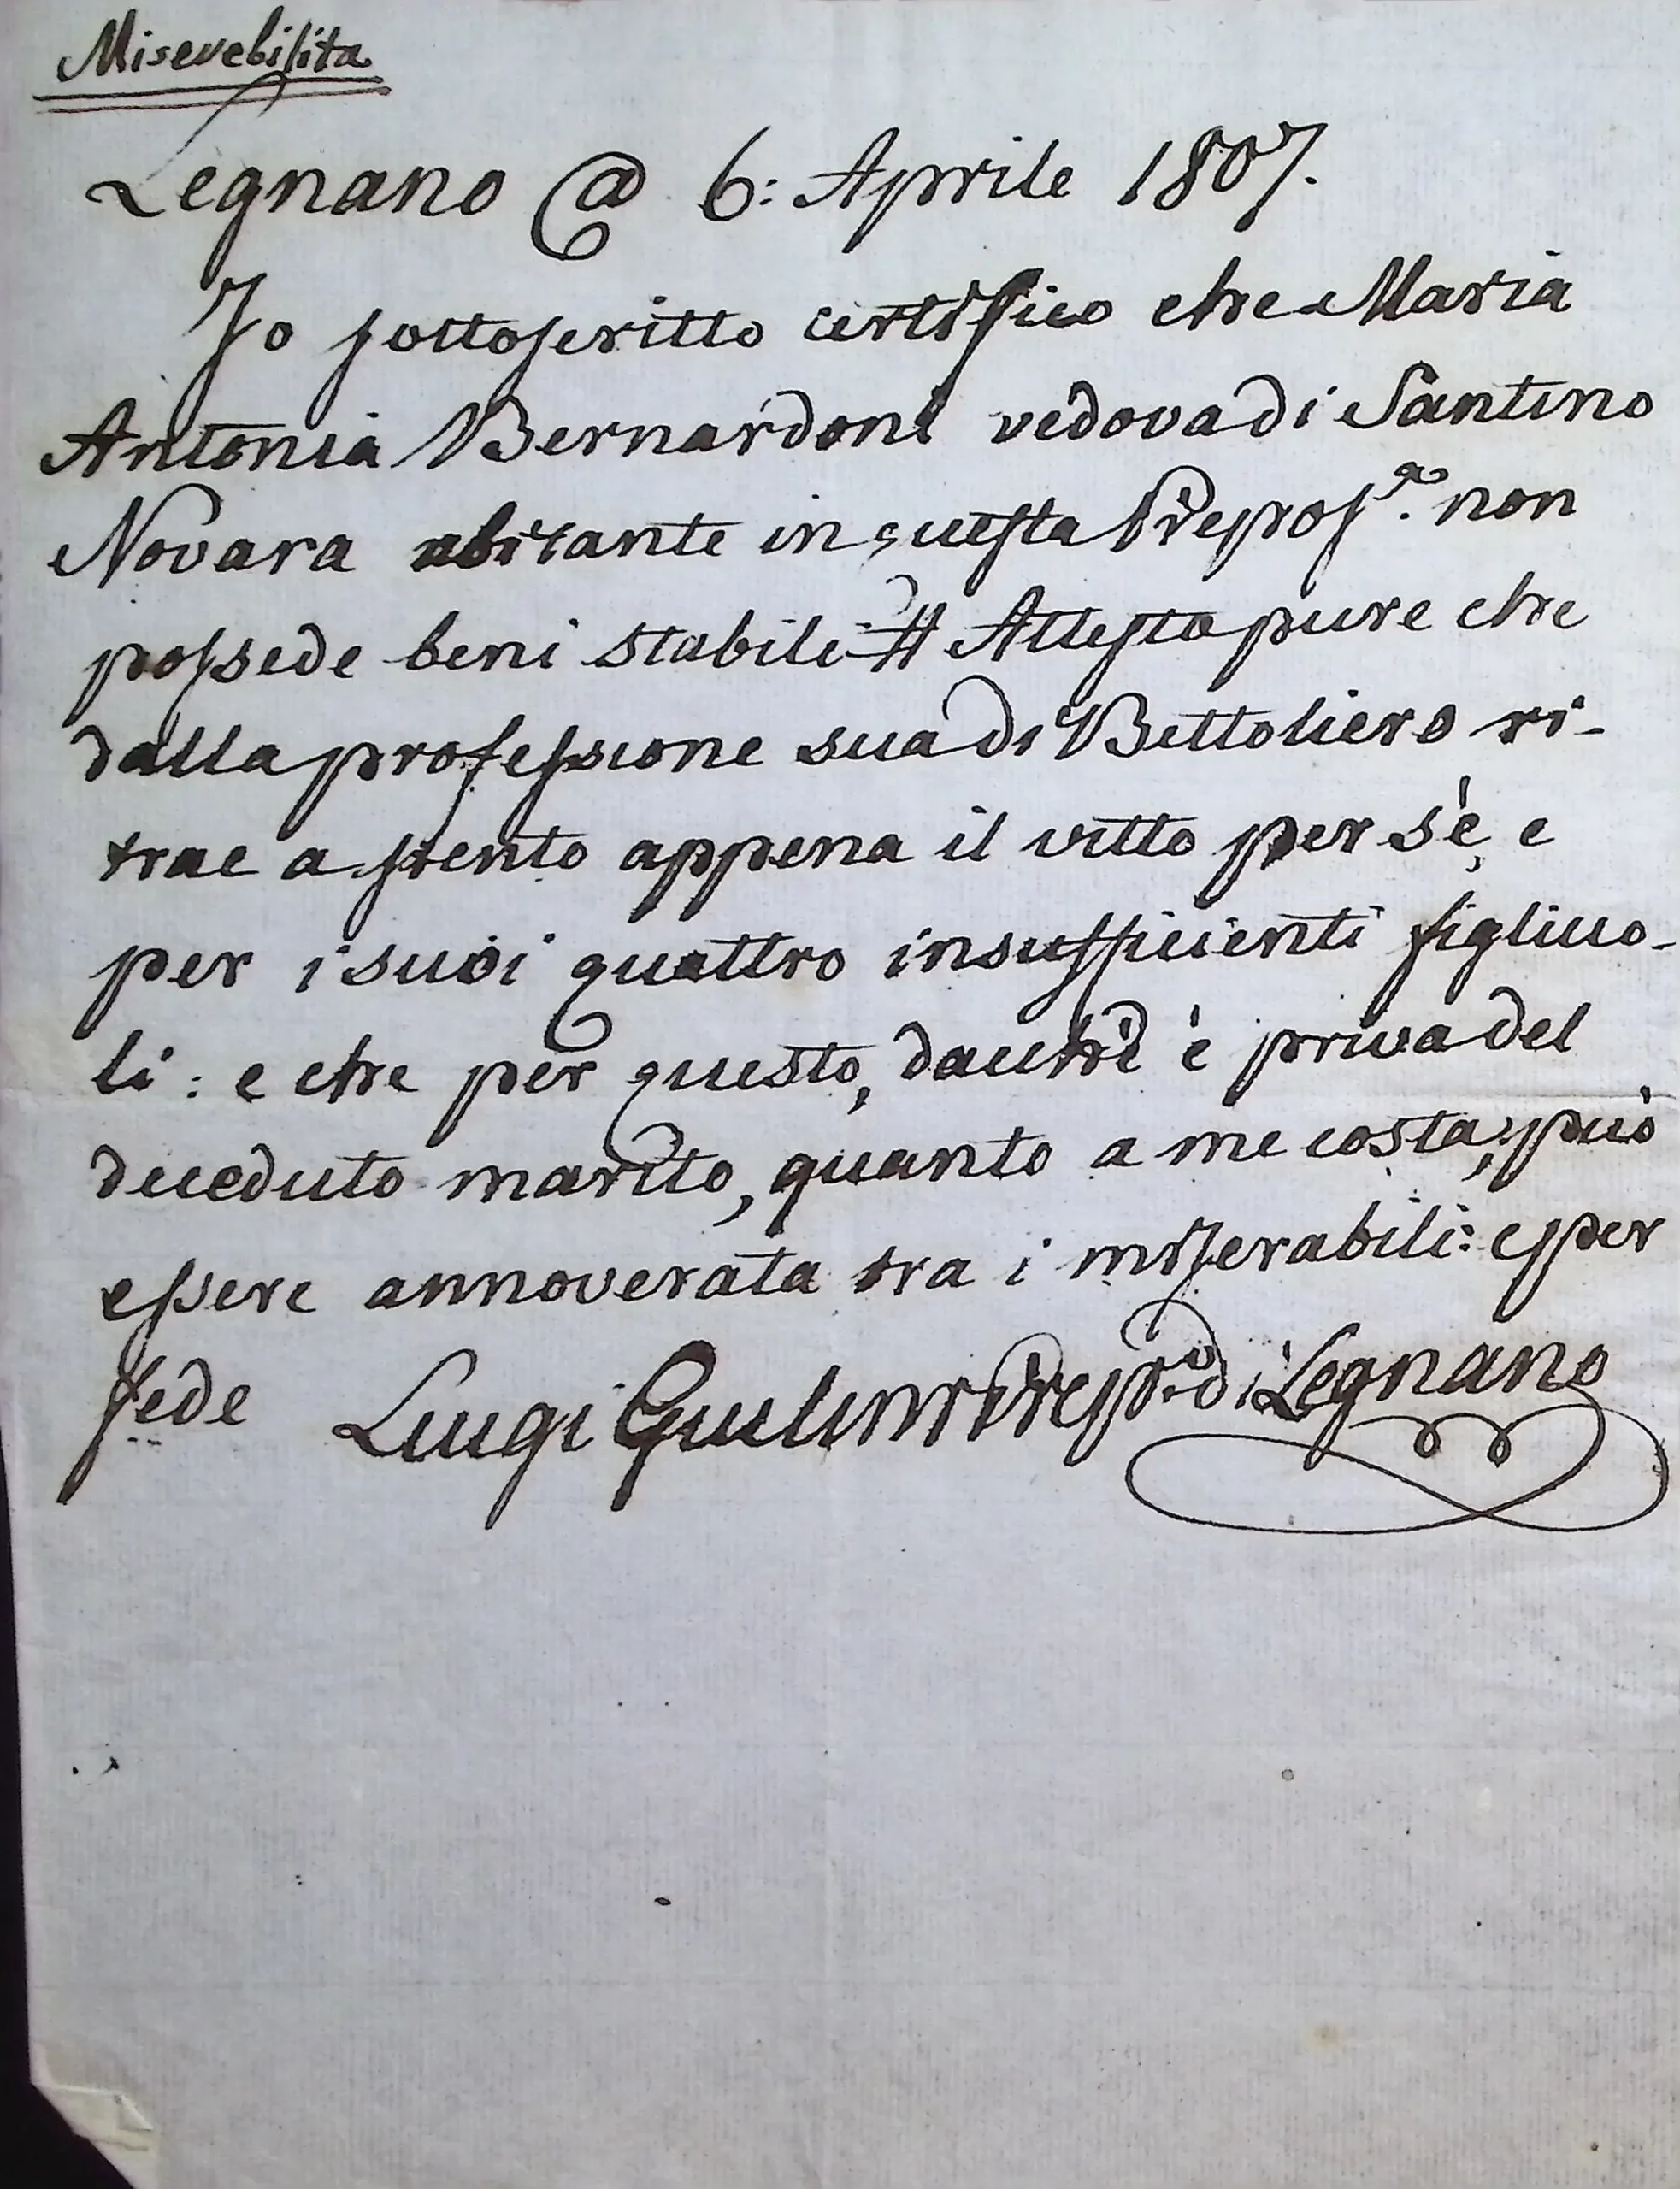 Miserebilita
Legnano @ 6: Aprile 1807.
Io sottoscritto certifico che Maria
Antonia Bernardoni vedova di Santino
Novara abitante in questa Prepos.ª non
possede beni stabili # Attesto pure che
dalla professione sua di Bettoliero ri-
trae a stento appena il vitto per sè, e
per i suoi quattro insufficienti figliuo-
li: e che per questo, dacchè è priva del
deceduto marito, quanto a me costa, può
essere annoverata tra i miserabili: e per
fede Luigi Prep.to di Legnano